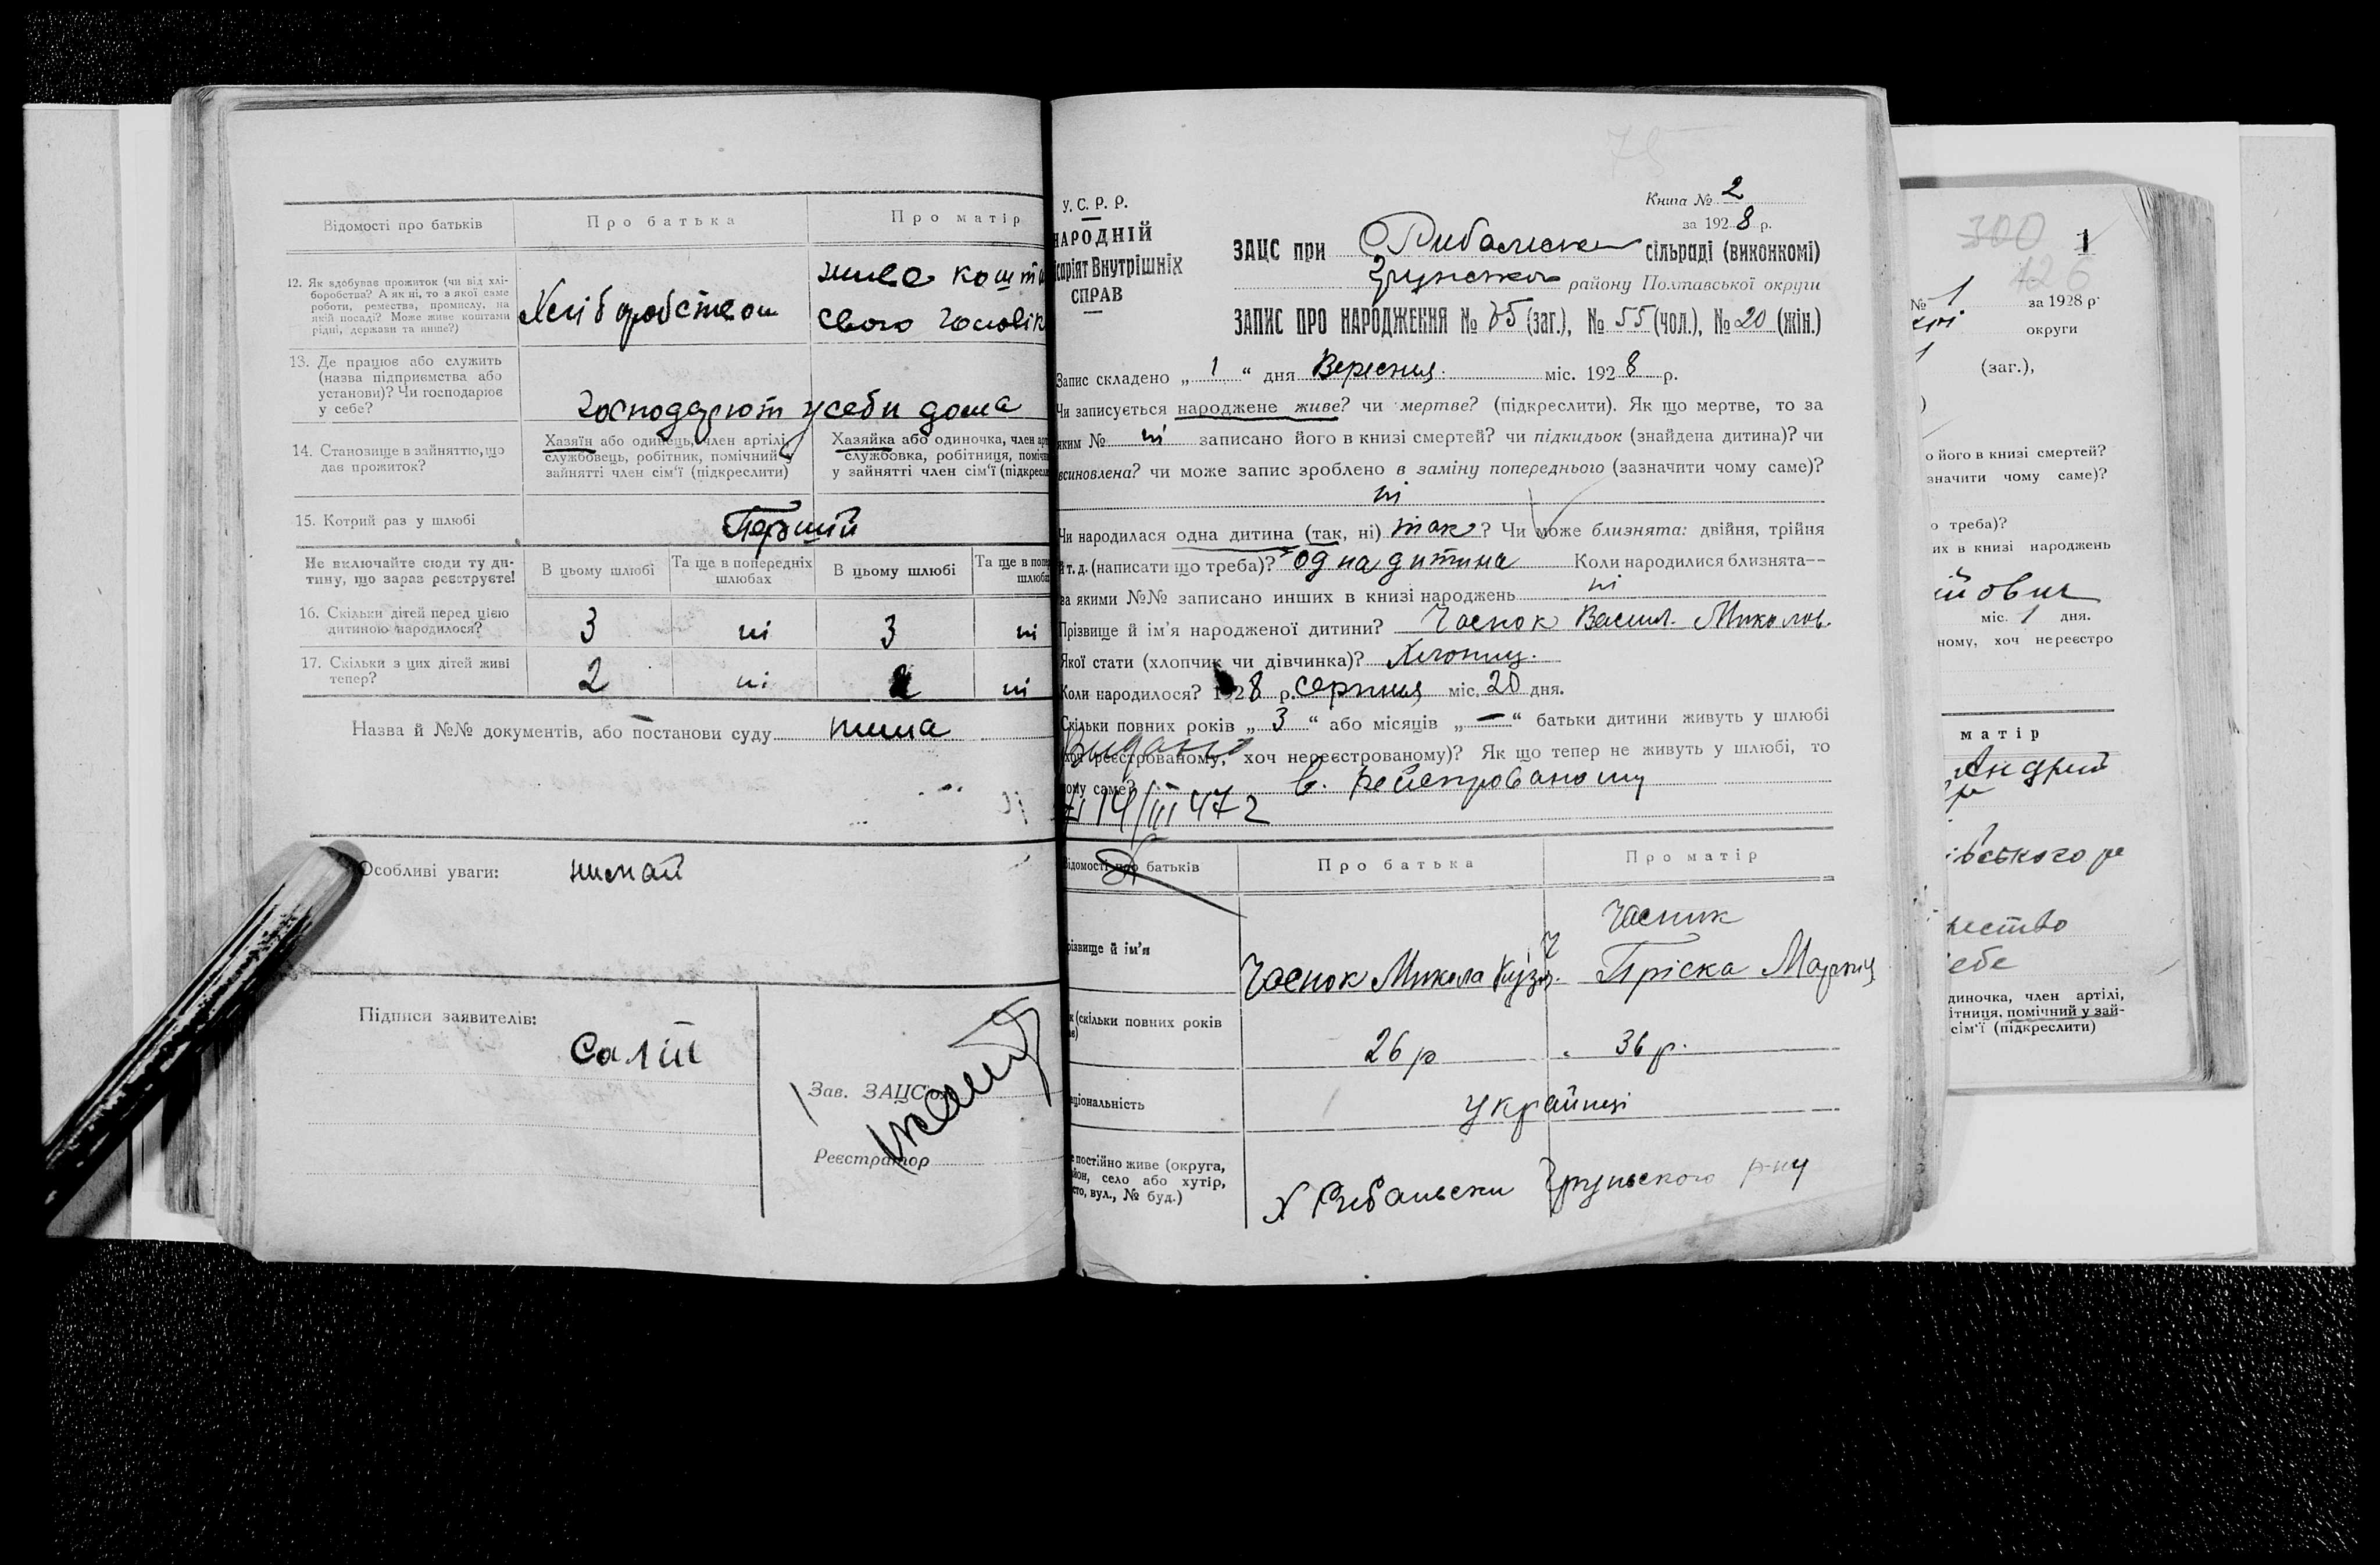 Відомості про батьків
Про батька
Про матір
12. Як здобуває прожиток (чи від хлі-
боробства? А як ні, то з якої саме
роботи, ремества, промислу, на
якій посаді? Може живе коштами
рідні, держави та инше?)
Хліборобством
живе кошта
свого чоловік
13. Де працює або служить
(назва підприємства або
установи)? Чи господарює
у себе?
господарют у себи дома
14. Становище в зайняттю, що
дає прожиток?
Хазяїн або одинець, член артілі,
службовець, робітник, помічний у
зайнятті член сім'ї (підкреслити)
Хазяйка або одиночка, член арт
службовка, робітниця, поміч
у зайнятті член сім'ї (підкресл
15. Котрий раз у шлюбі
Перший
Не включайте сюди ту ди-
тину, що зараз реєструєте!
В цьому шлюбі
Та ще в попередніх
шлюбах
В цьому шлюбі
Та ще в попе
шлюбах
16. Скільки дітей перед цією
дитиною народилося?
3 ні 3 ні
17. Скільки з цих дітей живі
тепер?
2 ні 2 ні
Назва й №№ документів, або постанови суду нима
Особливі уваги: нимай
Підписи заявителів:
Зав. ЗАЦС'ом
Реєстратор
75
У. С. Р. Р.
НАРОДНІЙ
існріят Внутрішніх
СПРАВ
Книга № 2
за 1928 р.
ЗАЦС при Рибальски сільраді (виконкомі)
Грунського району Полтавської округи
ЗАПИС ПРО НАРОДЖЕННЯ № 75 (заг.), № 55 (чол.), № 20 (жін.)
Запис складено „ 1 “ дня Вересня міс. 1928 р.
Чи записується народжене живе? чи мертве? (підкреслити). Як що мертве, то за
яким № ні записано його в книзі смертей? чи підкидьок (знайдена дитина)? чи
всиновлена? чи може запис зроблено в заміну попереднього (зазначити чому саме)?
ні
Чи народилася одна дитина (так, ні) так? Чи може близнята: двійня, трійня
й т. д. (написати що треба)? одна дитина Коли народилися близнята—
за якими №№ записано инших в книзі народжень ні
Прізвище й ім'я народженої дитини? Часнок Васил. Миколов.
Якої стати (хлопчик чи дівчинка)? Хлопиц.
Коли народилося? 1928 р. серпня міс. 20 дня.
Скільки повних років „ 3 “ або місяців „ — “ батьки дитини живуть у шлюбі
Выдано
(хоч реєстрованому, хоч нереєстрованому)? Як що тепер не живуть у шлюбі, то
чому саме? в. рейестрованому
14/III 47 г
Відомості про батьків
Про батька
Про матір
різвище й ім'я
Часнок Микола Кузм.
Часник
Пріска Маркиц
к (скільки повних років
26 р
36 р.
ціональність
Українці
е постійно живе (округа,
йон, село або хутір,
сто, вул., № буд.)
х Рибальски Грунського р-ну
300
1
126
№ 1 за 1928 р
округи
(заг.),
)
о його в книзі смертей?
значити чому саме)?
о треба)?
их в книзі народжень
йович
міс. 1 дня.
ному, хоч нереєстро
матір
Андрий
івського ра
чество
себе
диночка, член артілі,
ітниця, помічний у зай-
сім'ї (підкреслити)